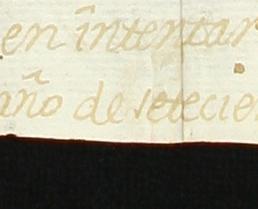 en intentar
año de setecie